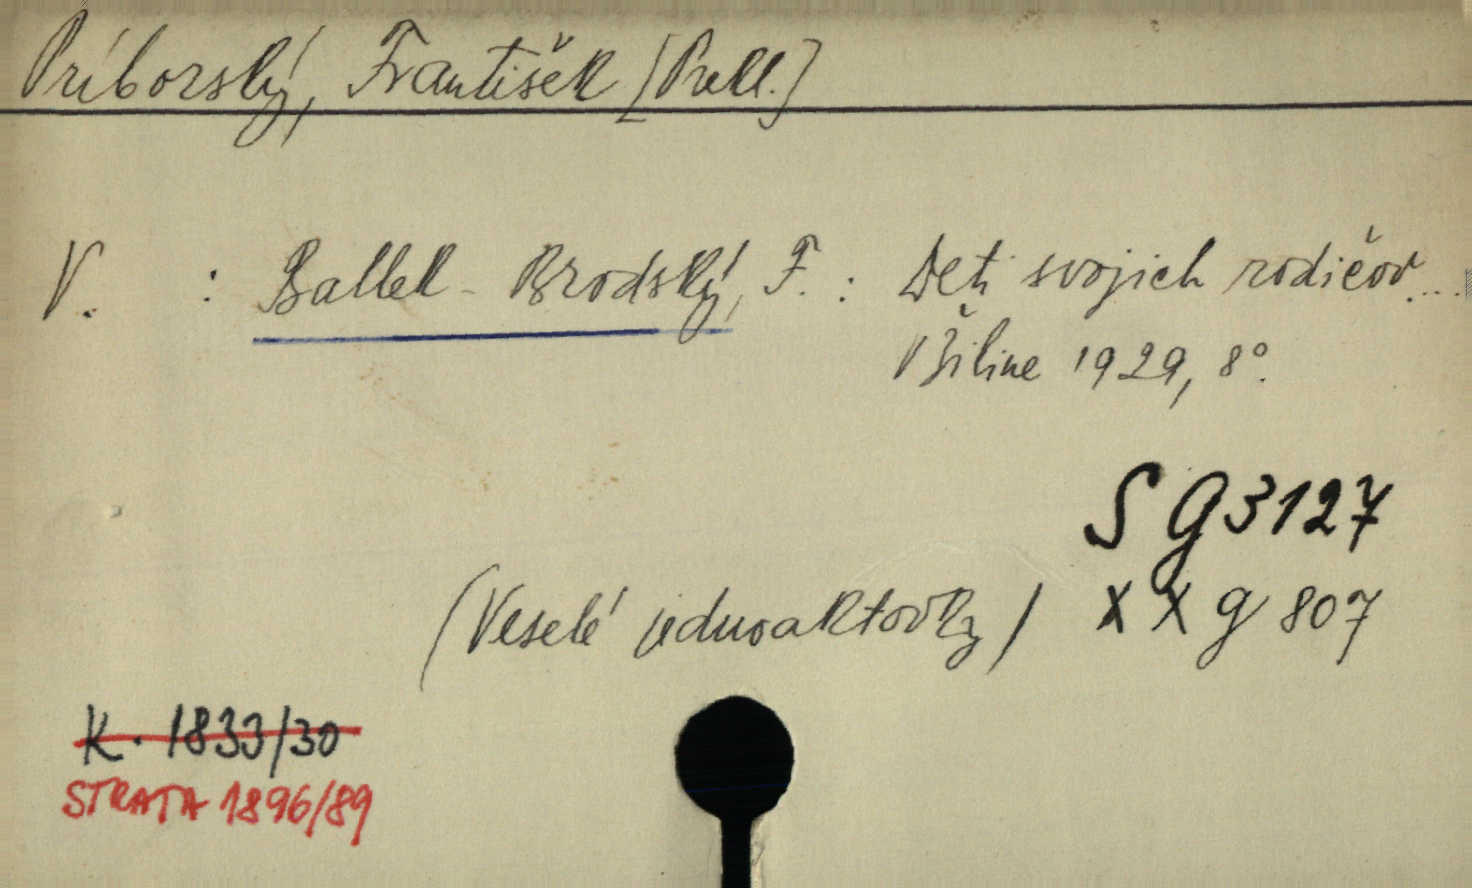 Príborský, František [Prekl.]
V. : Ballek-Brodský, F. : Deti svojich rodičov...
V Žiline 1929, 8°.
S G 3127
(Veselé jednoaktovky) X X g 807
K. 1833/30
STRATA 1896/89